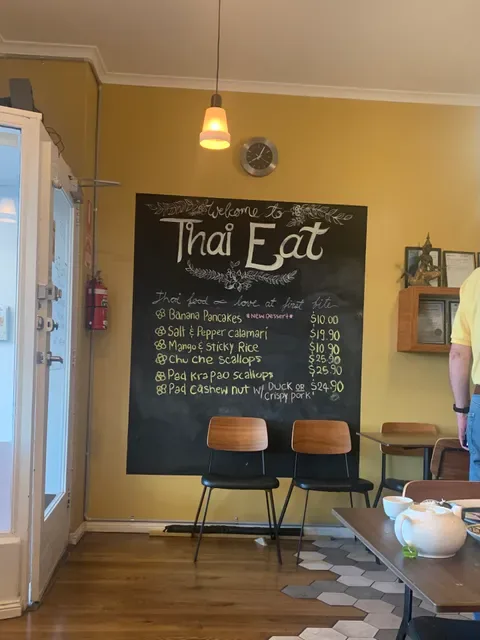 Welcome to
Thai Eat
Thai food is love at first bite
Banana Pancakes *New Dessert* $10.00
Salt & Pepper calamari $19.90
Mango & Sticky Rice $10.90
Chu che scallops $25.90
Pad krapao scallops $25.90
Pad cashew nut w/ Duck or crispy pork $24.90